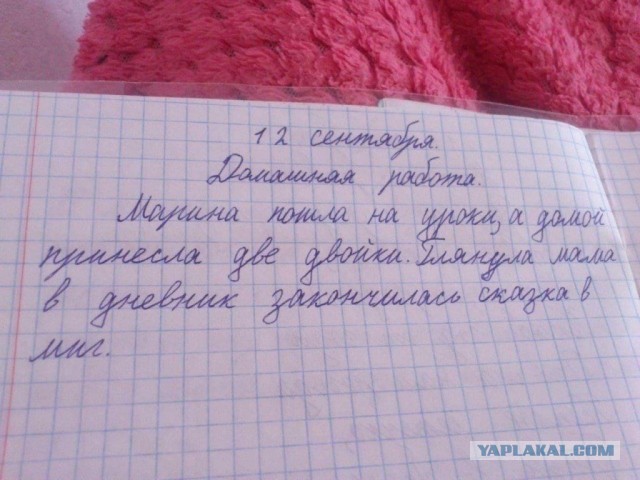 12 сентября.
Домашная работа.
Марина пошла на уроки, а домой
принесла две двойки. Глянула мама
в дневник закончилась сказка в
миг.
YAPLAKAL.COM